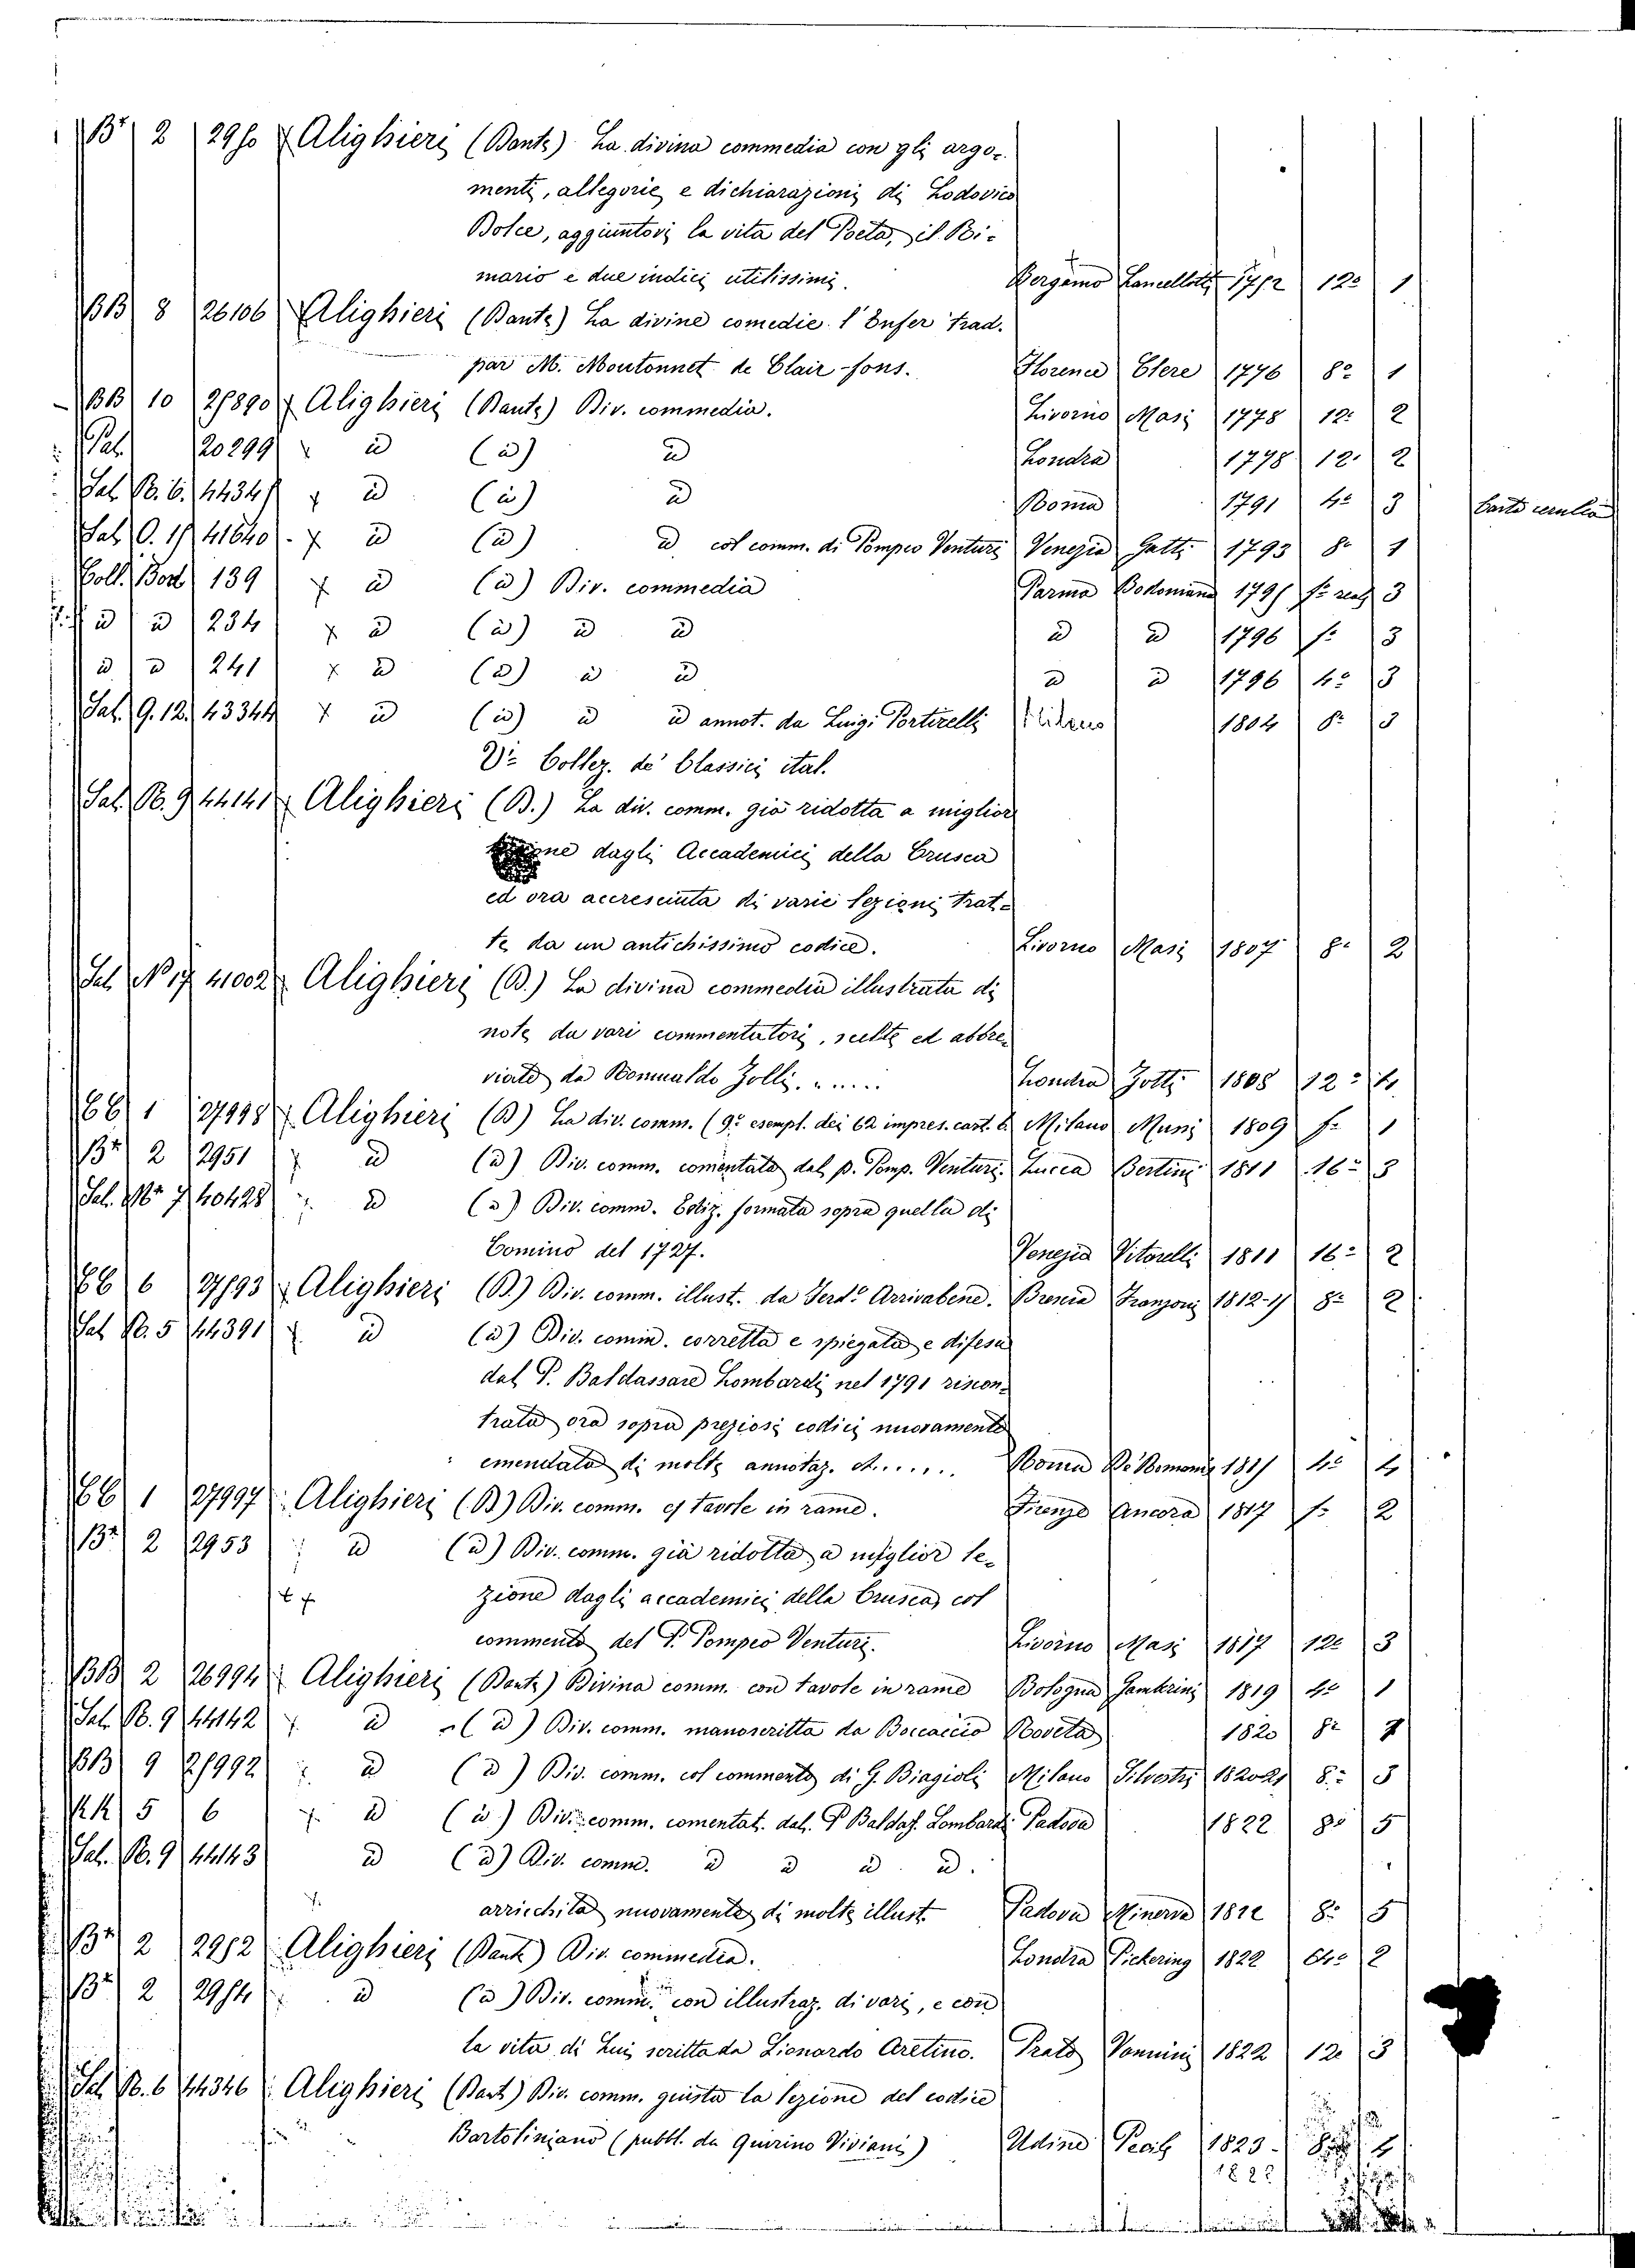 Br 2 2950 Alighieri (Dante) La divina commedia con gli argo-
menti, allegorie e dichiarazioni di Lodovico
Dolce, aggiuntovi la vita del Poeta, il Ri-
mario e due indici utilissimi. Bergamo Lancellotti 1752 12o 1
BB 8 26106 Alighieri (Dante) La divine comedie l'Enfer trad.
par M. Moutonnet de Clair-fons. Florence Clere 1776 8o 1
BB 10 25890 Alighieri (Dante) Div. commedia. Livorno Masi 1778 12o 2
Pal. 20299 id (id) id Londra 1778 12o 2
Sal. R. 6. 44345 id (id) id Roma 1791 4o 3
Sal. O. 15 41640 id (id) id col comm. di Pompeo Venturi Venezia Gatti 1793 8o 1
Coll. Bod. 139 id (id) Div. commedia Parma Bodoniana 1795 fo real 3
id id 234 id (id) id id id id 1796 fo 3
id id 241 id (id) id id id id 1796 4o 3
Sal. G. 12. 43344 id (id) id id annot. da Luigi Portirelli Milano 1804 8o 3
Va Collez. de' Classici ital.
Sal. R. 9 44141 Alighieri (D.) La div. comm. già ridotta a miglior
dagli Accademici della Crusca
ed ora accresciuta di varie lezioni trat-
te da un antichissimo codice. Livorno Masi 1807 8o 2
Sal. N 17 41002 Alighieri (D.) La divina commedia illustrata di
note da vari commentatori, scelte ed abbre-
viate da Romualdo Zotti. Londra Zotti 1808 12o 4
CC 1 27998 Alighieri (D) La div. comm. (9o esempl. dei 62 impres. cart. Milano Mussi 1809 fo 1
Br 2 2951 id (id) Div. comm. comentata dal p. Pomp. Venturi. Lucca Bertini 1811 16o 3
Sal. 7 40428 id (id) Div. comm. Ediz. formata sopra quella di
Comino del 1727. Venezia Vitarelli 1811 16o 2
CC 6 Alighieri (D.) Div. comm. illust. da Ferdo Arrivabene. Brescia Franzoni 1812-17 8o 2
Sal R. 5 44391 id (id) Div. comm. corretta e spiegata e difesa
dal P. Baldassare Lombardi nel 1791 riscon-
trata ora sopra preziosi codici nuovamente
emendata di molte annotaz. Roma De Romanis 1815 4o 4
CC 1 27997 Alighieri (D) Div. comm. c/ tavole in rame. Firenze Ancora 1817 fo 2
Br 2 2953 id (id) Div. comm. già ridotta a miglior le-
zione dagli accademici della Crusca, col
commento del P. Pompeo Venturi. Livorno Masi 1817 12o 3
BB 2 26994 Alighieri (Dante) Divina comm. con tavole in rame Bologna Gamberini 1819 4o 1
Sal. R. 9 44142 id (id) Div. comm. manoscritta da Boccaccio Roveta 1820 8o
BB 9 25992 id (id) Div. comm. col commento di G. Biagioli Milano Silvestri 1820-21 8o 3
KK 5 6 id (id) Div. comm. comentat. dal. P. Baldas. Lombardi Padova 1822 8o 5
Sal. R. 9 44143 id (id) Div. comm. id id id id.
arricchita nuovamente di molte illust. Padova Minerva 1822 8o 5
Br 2 2952 Alighieri (Dante) Div. commedia. Londra Pickering 1822 64o 2
Br 2 2954 id (id) Div. comm. con illustraz. di vari, e con
la vita di Lui scritta da Lionardo Aretino. Prato Vannini 1822 12o 3
Sal. R. 6 44346 Alighieri (Dant) Div. comm. giusta la lezione del codice
Bartoliniano (pubbl. da Quirino Viviani) Udine Pecile 1823-
1828